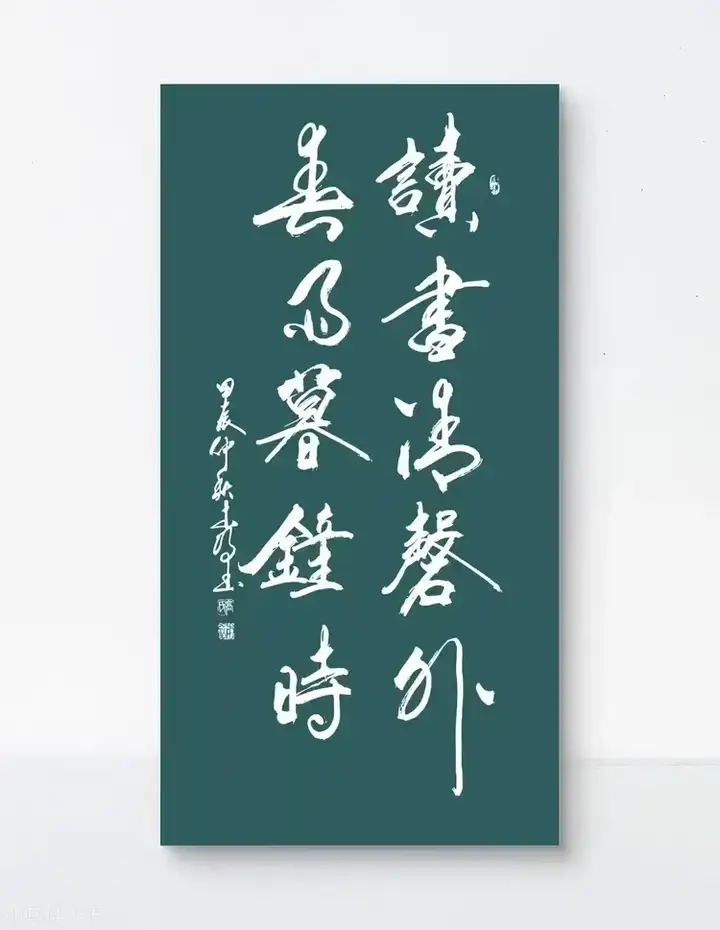 讀書清磬外
看雨暮鐘時
甲辰仲秋